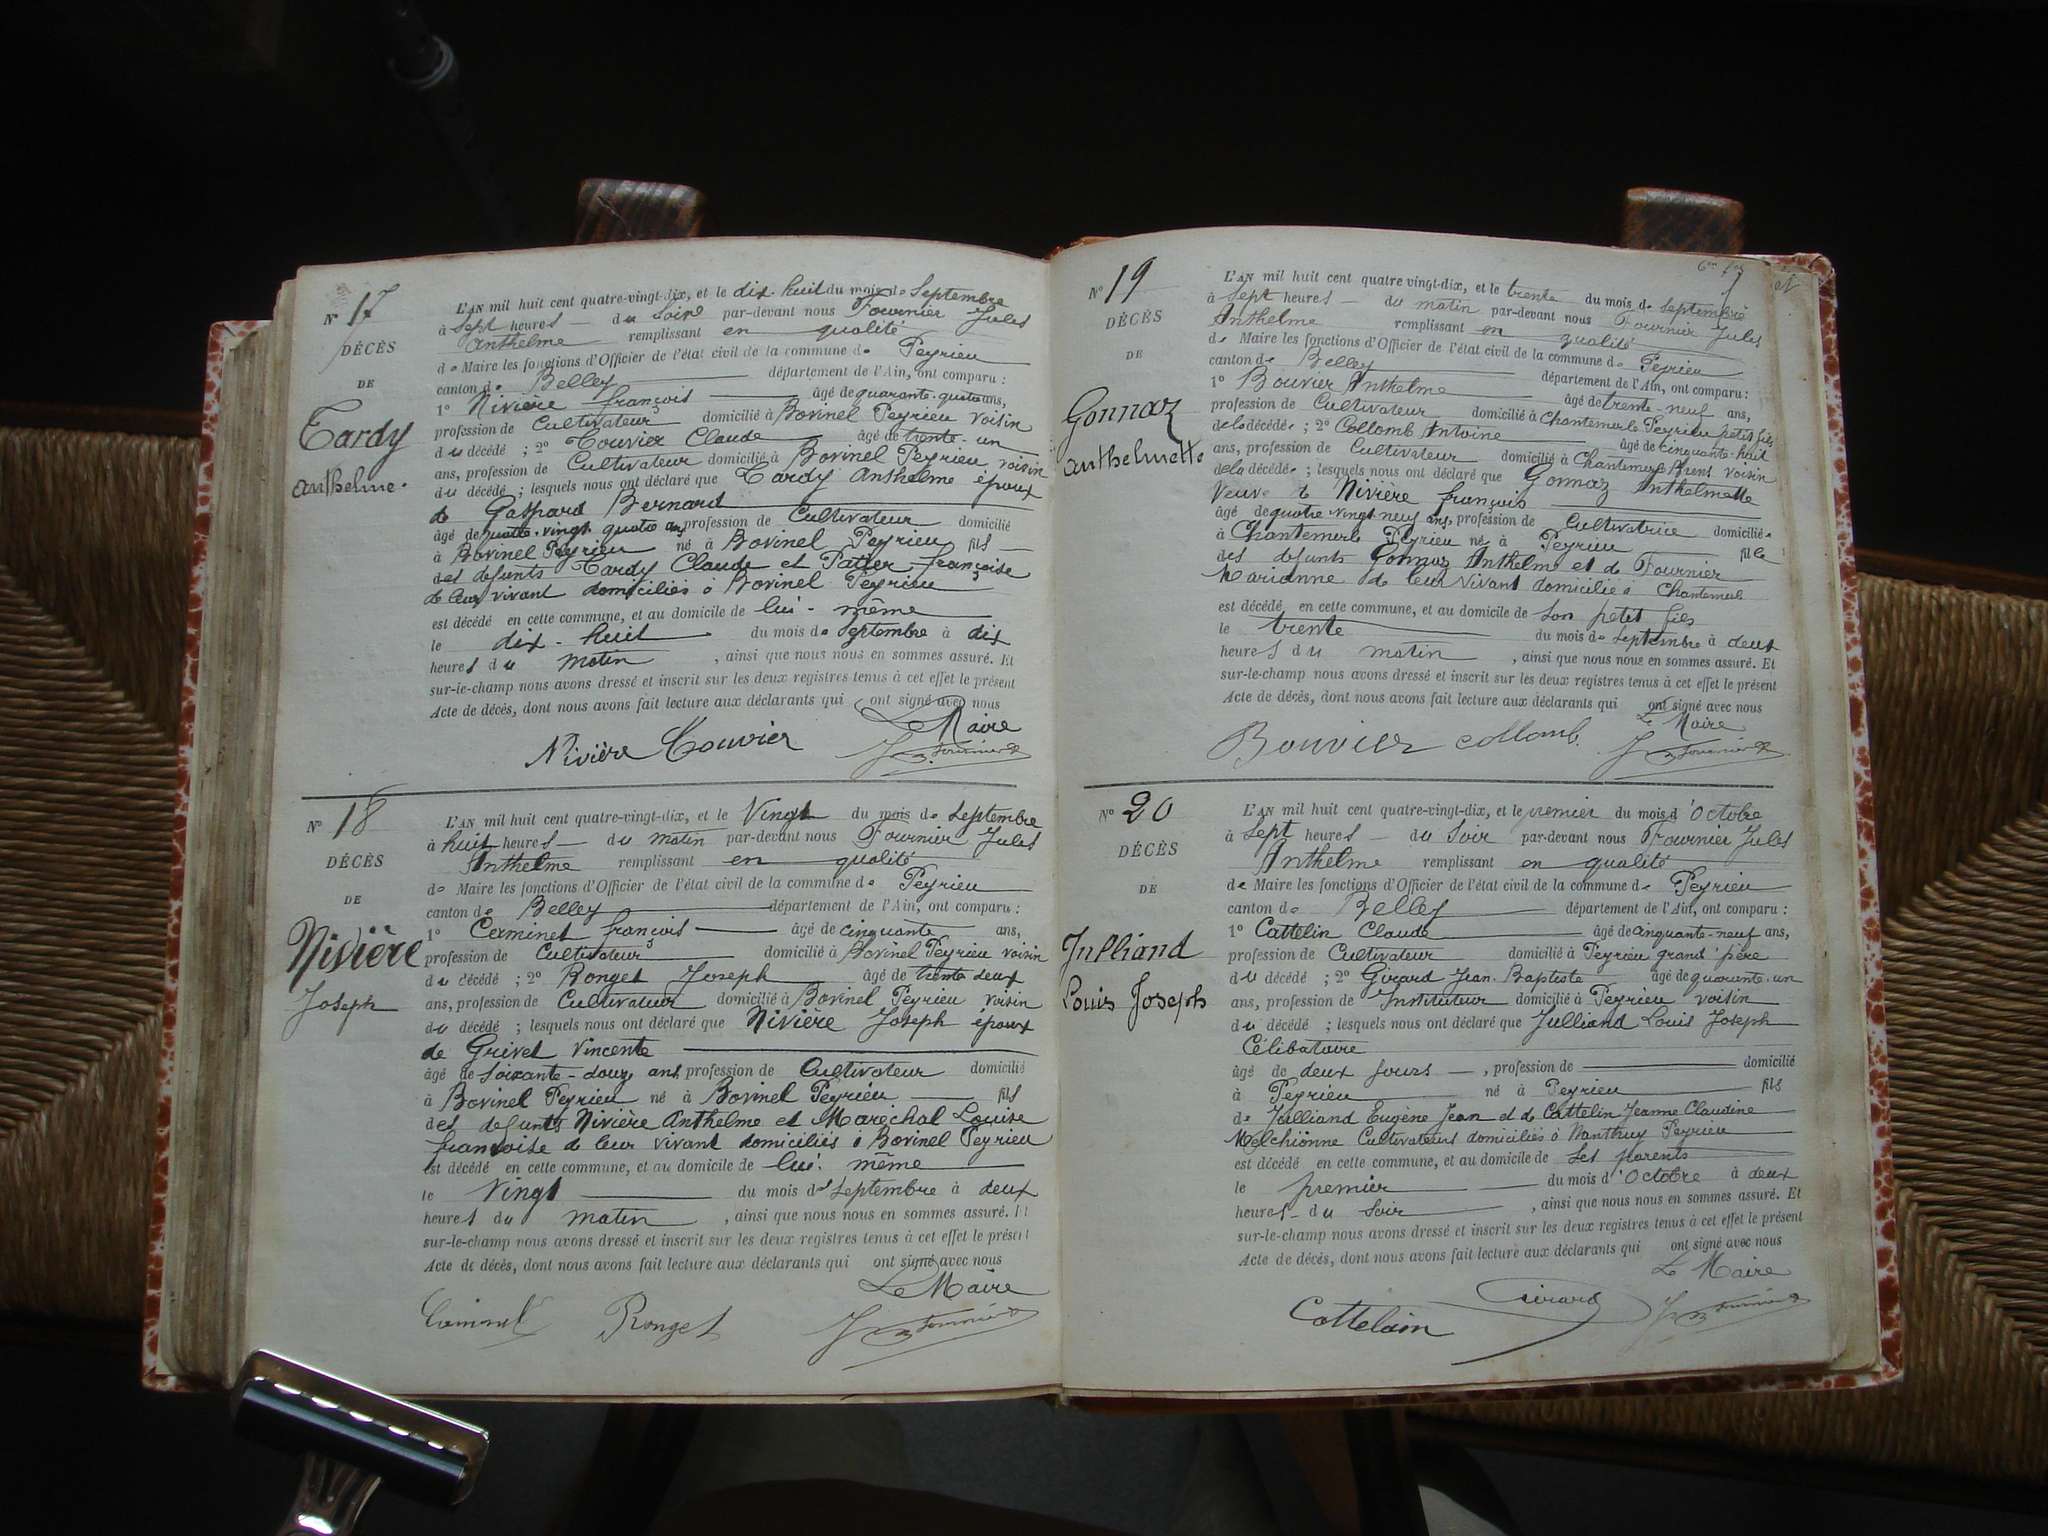 N° 17
DÉCÈS
DE
Tardy
Anthelme.
L'AN mil huit cent quatre-vingt-dix, et le dix-huit du mois de Septembre
à Sept heures du Soir par-devant nous Fournier Jules
Anthelme remplissant en qualité
de Maire les fonctions d'Officier de l'état civil de la commune de Peyrieu
canton de Belley département de l'Ain, ont comparu :
1° Nivière françois âgé de quarante-quatre ans,
profession de Cultivateur domicilié à Bovinel Peyrieu voisin
du décédé ; 2° Touvier Claude âgé de trente-un
ans, profession de Cultivateur domicilié à Bovinel Peyrieu voisin
du décédé ; lesquels nous ont déclaré que Tardy Anthelme époux
de Gaspard Bernard
âgé de quatre-vingt quatre ans, profession de Cultivateur domicilié
à Bovinel Peyrieu né à Bovinel Peyrieu fils
des defunts Tardy Claude et Patter françoise
de leur vivant domiciliés à Bovinel Peyrieu
est décédé en cette commune, et au domicile de lui-même
le dix-huit du mois de Septembre à dix
heures du matin , ainsi que nous nous en sommes assuré. Et
sur-le-champ nous avons dressé et inscrit sur les deux registres tenus à cet effet le présent
Acte de décès, dont nous avons fait lecture aux déclarants qui ont signé avec nous
Le Maire
Nivière Touvier J Fournier
N° 18
DÉCÈS
DE
Nivière
Joseph
L'AN mil huit cent quatre-vingt-dix, et le Vingt du mois de Septembre
à huit heures du matin par-devant nous Fournier Jules
Anthelme remplissant en qualité
de Maire les fonctions d'Officier de l'état civil de la commune de Peyrieu
canton de Belley département de l'Ain, ont comparu :
1° Cerminet françois âgé de cinquante ans,
profession de Cultivateur domicilié à Bovinel Peyrieu voisin
du décédé ; 2° Ronget Joseph âgé de trente deux
ans, profession de Cultivateur domicilié à Bovinel Peyrieu voisin
du décédé ; lesquels nous ont déclaré que Nivière Joseph époux
de Grivet Vincente
âgé de Soixante-douze ans, profession de Cultivateur domicilié
à Bovinel Peyrieu né à Bovinel Peyrieu fils
des defunts Nivière Anthelme et Maréchal Louise
françoise de leur vivant domiciliés à Bovinel Peyrieu
est décédé en cette commune, et au domicile de lui-même
le Vingt du mois de Septembre à deux
heures du matin , ainsi que nous nous en sommes assuré. Et
sur-le-champ nous avons dressé et inscrit sur les deux registres tenus à cet effet le présent
Acte de décès, dont nous avons fait lecture aux déclarants qui ont signé avec nous
Le Maire
Ronget J Fournier
N° 19
DÉCÈS
DE
Gonnaz
Anthelmette
L'AN mil huit cent quatre vingt-dix, et le trente du mois de Septembre
à Sept heures du matin par-devant nous Fournier Jules
Anthelme remplissant en qualité
de Maire les fonctions d'Officier de l'état civil de la commune de Peyrieu
canton de Belley département de l'Ain, ont comparu :
1° Bouvier Anthelme âgé de trente-neuf ans,
profession de Cultivateur domicilié à Chantemerle Peyrieu petit fils
de la décédée ; 2° Collomb Antoine âgé de cinquante-huit
ans, profession de Cultivateur domicilié à Chantemerle Brens voisin
de la décédée ; lesquels nous ont déclaré que Gonnaz Anthelmette
Veuve de Nivière françois
âgé de quatre-vingt neuf ans, profession de Cultivatrice domiciliée
à Chantemerle Peyrieu né à Peyrieu fille
des defunts Gonnaz Anthelme et de Fournier
Marianne de leur vivant domicilié à Chantemerle
est décédé en cette commune, et au domicile de son petit fils
le trente du mois de Septembre à deux
heures du matin , ainsi que nous nous en sommes assuré. Et
sur-le-champ nous avons dressé et inscrit sur les deux registres tenus à cet effet le présent
Acte de décès, dont nous avons fait lecture aux déclarants qui ont signé avec nous
Le Maire
Bouvier Collomb. J Fournier
N° 20
DÉCÈS
DE
Julliand
Louis Joseph
L'AN mil huit cent quatre-vingt-dix, et le premier du mois d'Octobre
à Sept heures du Soir par-devant nous Fournier Jules
Anthelme remplissant en qualité
de Maire les fonctions d'Officier de l'état civil de la commune de Peyrieu
canton de Belley département de l'Ain, ont comparu :
1° Cattelin Claude âgé de cinquante-neuf ans,
profession de Cultivateur domicilié à Peyrieu grand'père
du décédé ; 2° Girard Jean-Baptiste âgé de quarante-un
ans, profession de Instituteur domicilié à Peyrieu voisin
du décédé ; lesquels nous ont déclaré que Julliand Louis Joseph
Célibataire
âgé de deux jours , profession de domicilié
à Peyrieu né à Peyrieu fils
de Julliand Eugène Jean et de Cattelin Jeanne Claudine
Melchionne Cultivateurs domiciliés à Nanthuy Peyrieu
est décédé en cette commune, et au domicile de ses parents
le premier du mois d'Octobre à deux
heures du Soir , ainsi que nous nous en sommes assuré. Et
sur-le-champ nous avons dressé et inscrit sur les deux registres tenus à cet effet le présent
Acte de décès, dont nous avons fait lecture aux déclarants qui ont signé avec nous
Le Maire
Cattelain Girard J Fournier